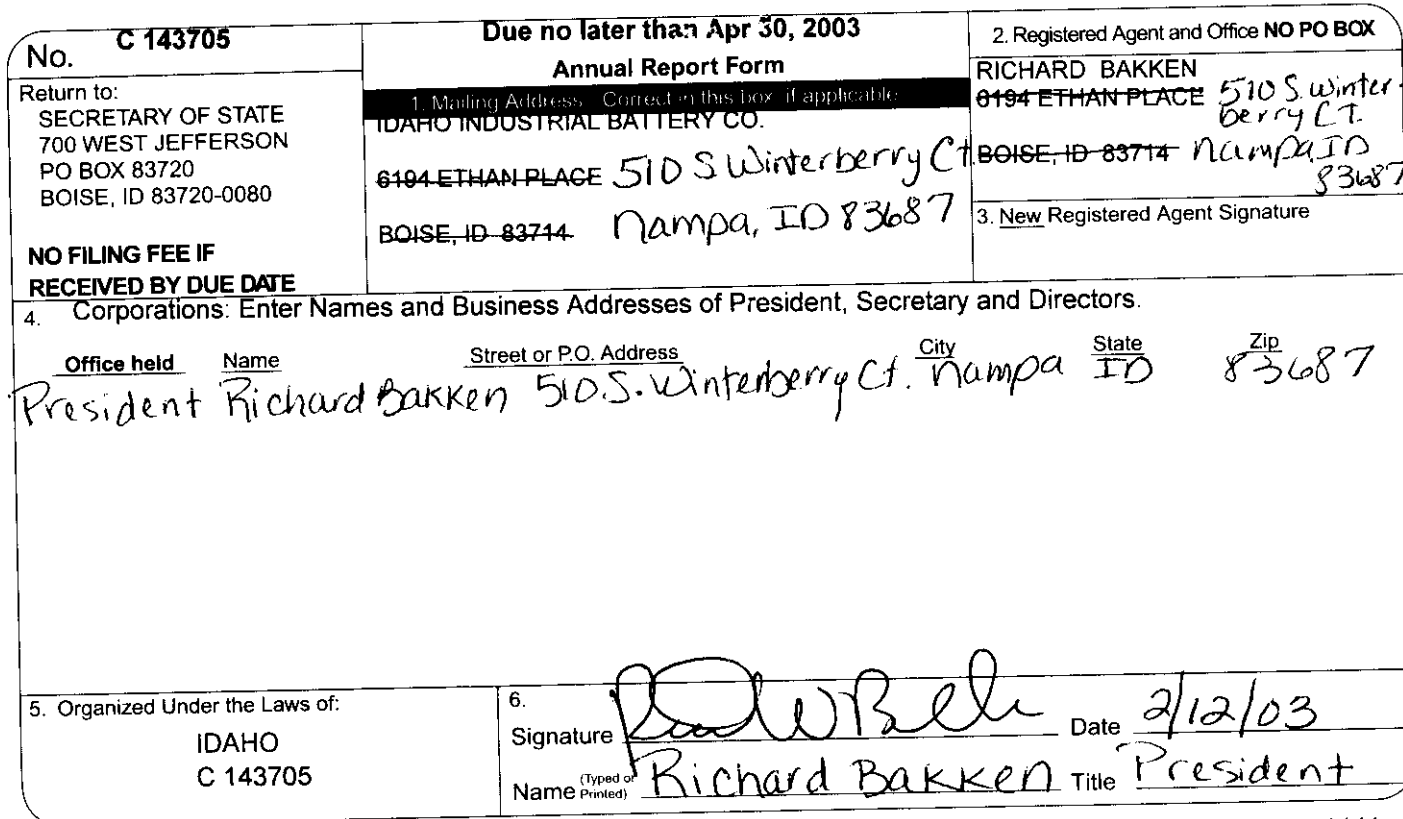 No. C 143705
Return to:
SECRETARY OF STATE
700 WEST JEFFERSON
PO BOX 83720
BOISE, ID 83720-0080
NO FILING FEE IF
RECEIVED BY DUE DATE
Due no later than Apr 30, 2003
Annual Report Form
1. Mailing Address Correct in this box if applicable
IDAHO INDUSTRIAL BATTERY CO.
6194 ETHAN PLACE 510 S Winterberry Ct
BOISE, ID 83714 Nampa, ID 83687
2. Registered Agent and Office NO PO BOX
RICHARD BAKKEN
6194 ETHAN PLACE 510 S. Winter-
berry CT.
BOISE, ID 83714 Nampa ID
83687
3. New Registered Agent Signature
4. Corporations: Enter Names and Business Addresses of President, Secretary and Directors.
Office held Name Street or P.O. Address City State Zip
President Richard Bakken 510.S. Winterberry Ct. Nampa ID 83687
5. Organized Under the Laws of:
IDAHO
C 143705
6.
Signature Date 2/12/03
Name (Typed or Printed) Richard Bakken Title President